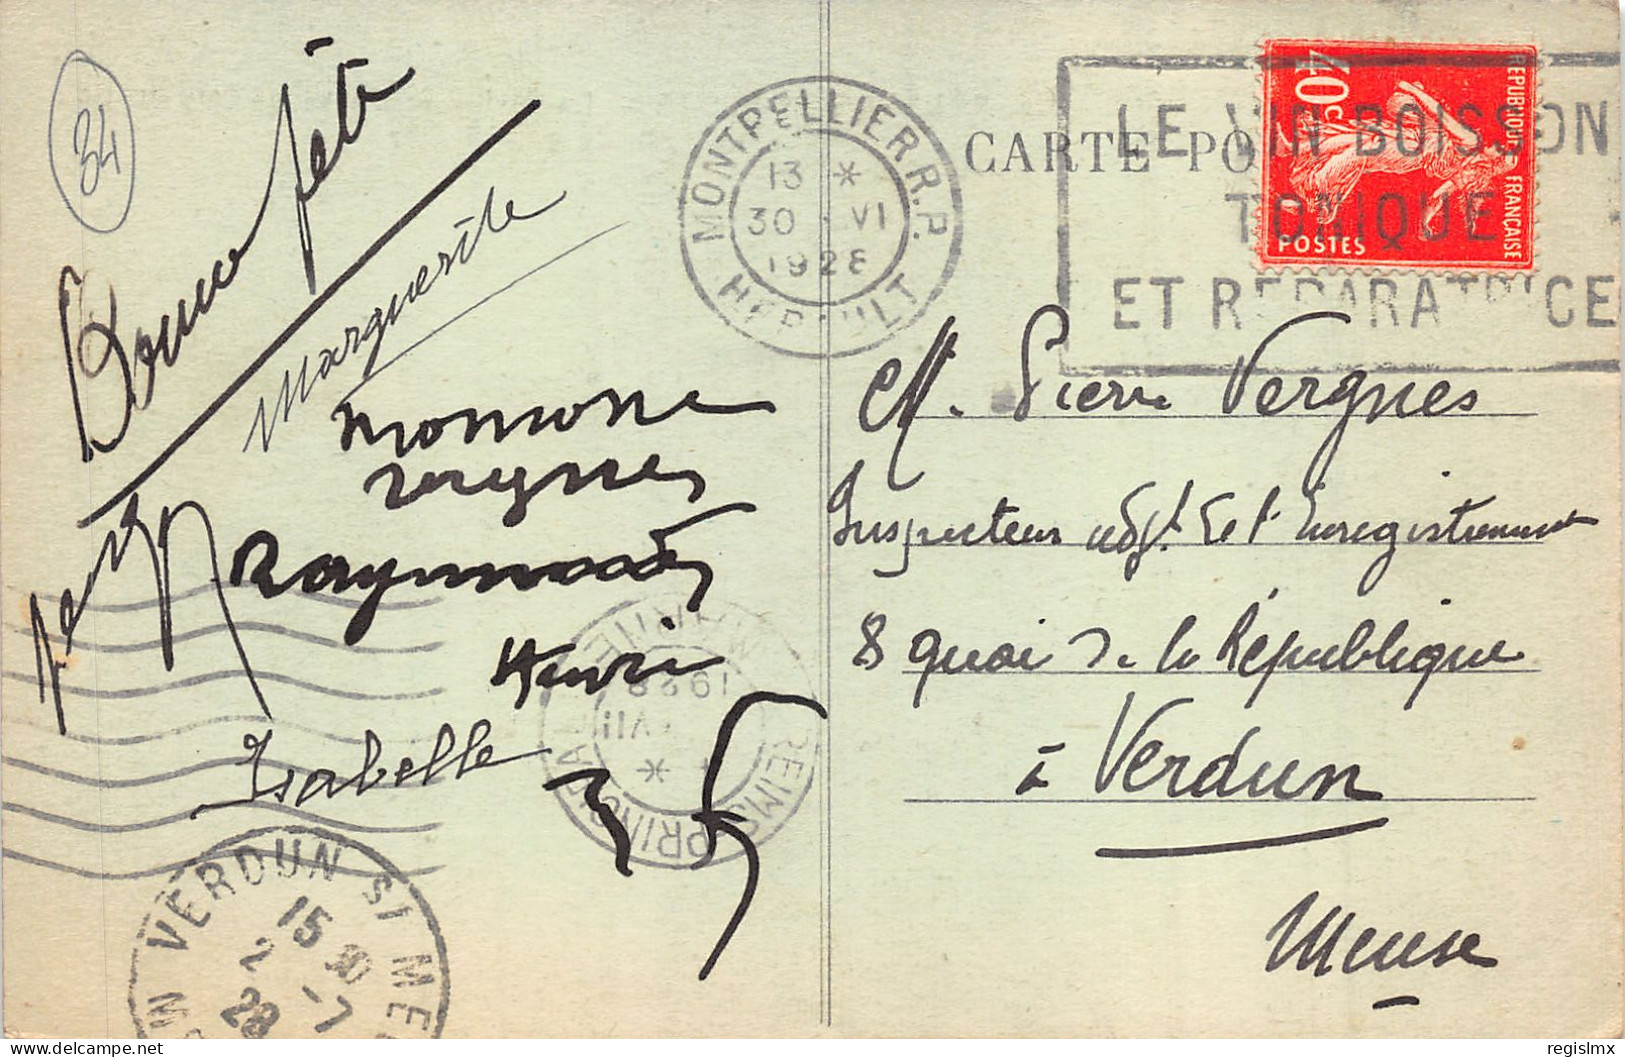 34
Bonne fête
Marguerite
Vergnes
Raymonde
Henri
Isabelle
MONTPELLIER R.P.
13 *
30 VI
1928
HERAULT
CARTE PO
LE VIN BOISSON
TONIQUE
ET REPARATRICE
40c
REPUBLIQUE FRANÇAISE
POSTES
M. Pierre Vergnes
Inspecteur adjt. de l'Enregistrement
8 quai de la République
à Verdun
Meuse
REIMS PRINCIPAL
MARNE
* VII
1928
VERDUN S/ MEUSE
15 30
2 -7
28
regislmx